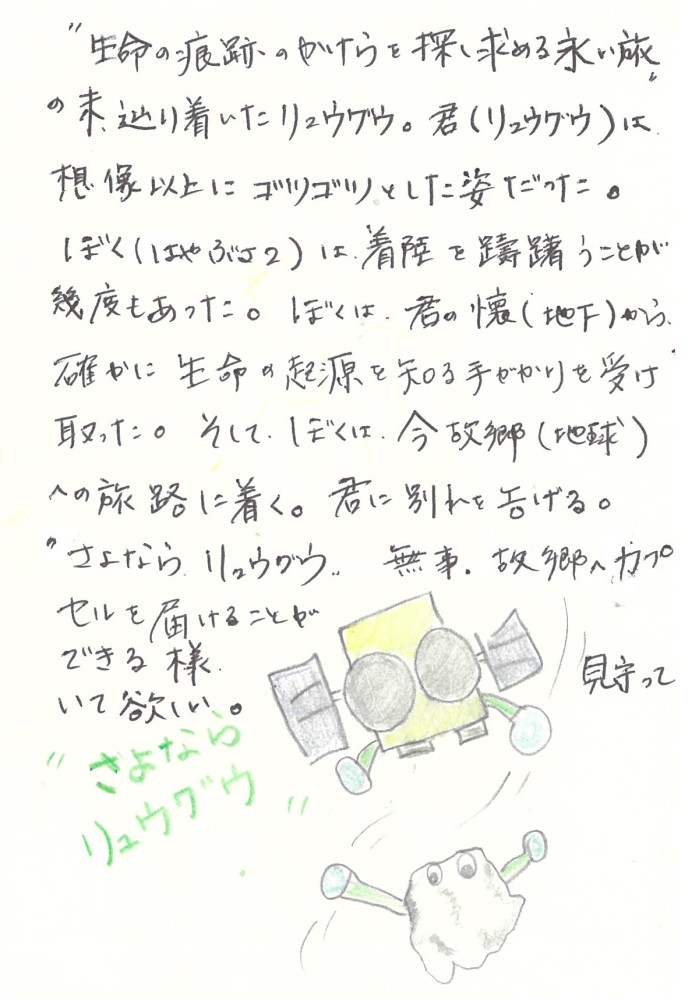 "生命の痕跡のかけらを探し求める永い旅"
の末、辿り着いたリュウグウ。君(リュウグウ)は
想像以上にゴツゴツとした姿だった。
ぼく(はやぶさ2)は、着陸を躊躇うことが
幾度もあった。ぼくは、君の懐(地下)から、
確かに生命の起源を知る手がかりを受け
取った。そして、ぼくは、今故郷(地球)
への旅路に着く。君に別れを告げる。
"さよなら リュウグウ" 無事、故郷へカプ
セルを届けることが
できる様、
見守って
いて欲しい。
"さよなら
リュウグウ"